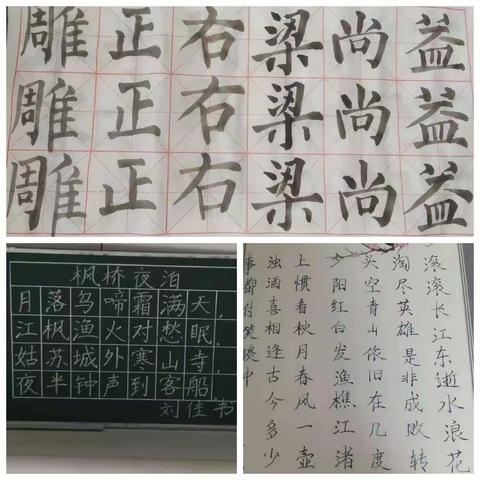 雕正右梁尚益
雕正右梁尚益
雕正右梁尚益
枫桥夜泊
月落乌啼霜满天，
江枫渔火对愁眠，
姑苏城外寒山寺，
夜半钟声到客船。
刘佳书
滚滚长江东逝水浪花
淘尽英雄是非成败转
头空青山依旧在几度
夕阳红白发渔樵江渚
上惯看秋月春风一壶
浊酒喜相逢古今多少
事都付笑谈中